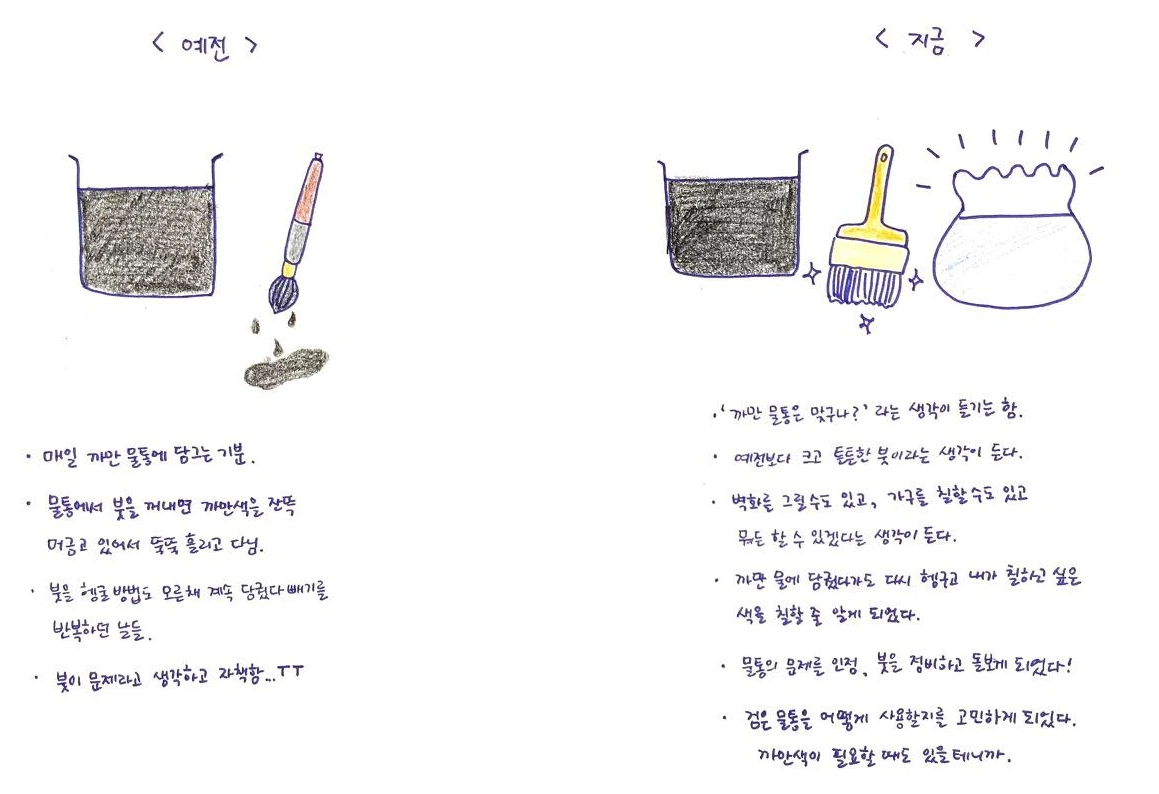 < 예전 >
· 매일 까만 물통에 담그는 기분.
· 물통에서 붓을 꺼내면 까만색을 잔뜩
머금고 있어서 뚝뚝 흘리고 다님.
· 붓을 헹굴 방법도 모른채 계속 담궜다 빼기를
반복하던 날들.
· 붓이 문제라고 생각하고 자책함...ㅜㅜ
< 지금 >
· '까만 물통은 맞구나?' 라는 생각이 들기는 함.
· 예전보다 크고 튼튼한 붓이라는 생각이 든다.
· 벽화를 그릴수도 있고, 가구를 칠할수도 있고
뭐든 할 수 있겠다는 생각이 든다.
· 까만 물에 담궜다가도 다시 헹구고 내가 칠하고 싶은
색을 칠할 줄 알게 되었다.
· 물통의 문제를 인정, 붓을 정비하고 돌보게 되었다!
· 검은 물통을 어떻게 사용할지를 고민하게 되었다.
까만색이 필요할 때도 있을테니까.